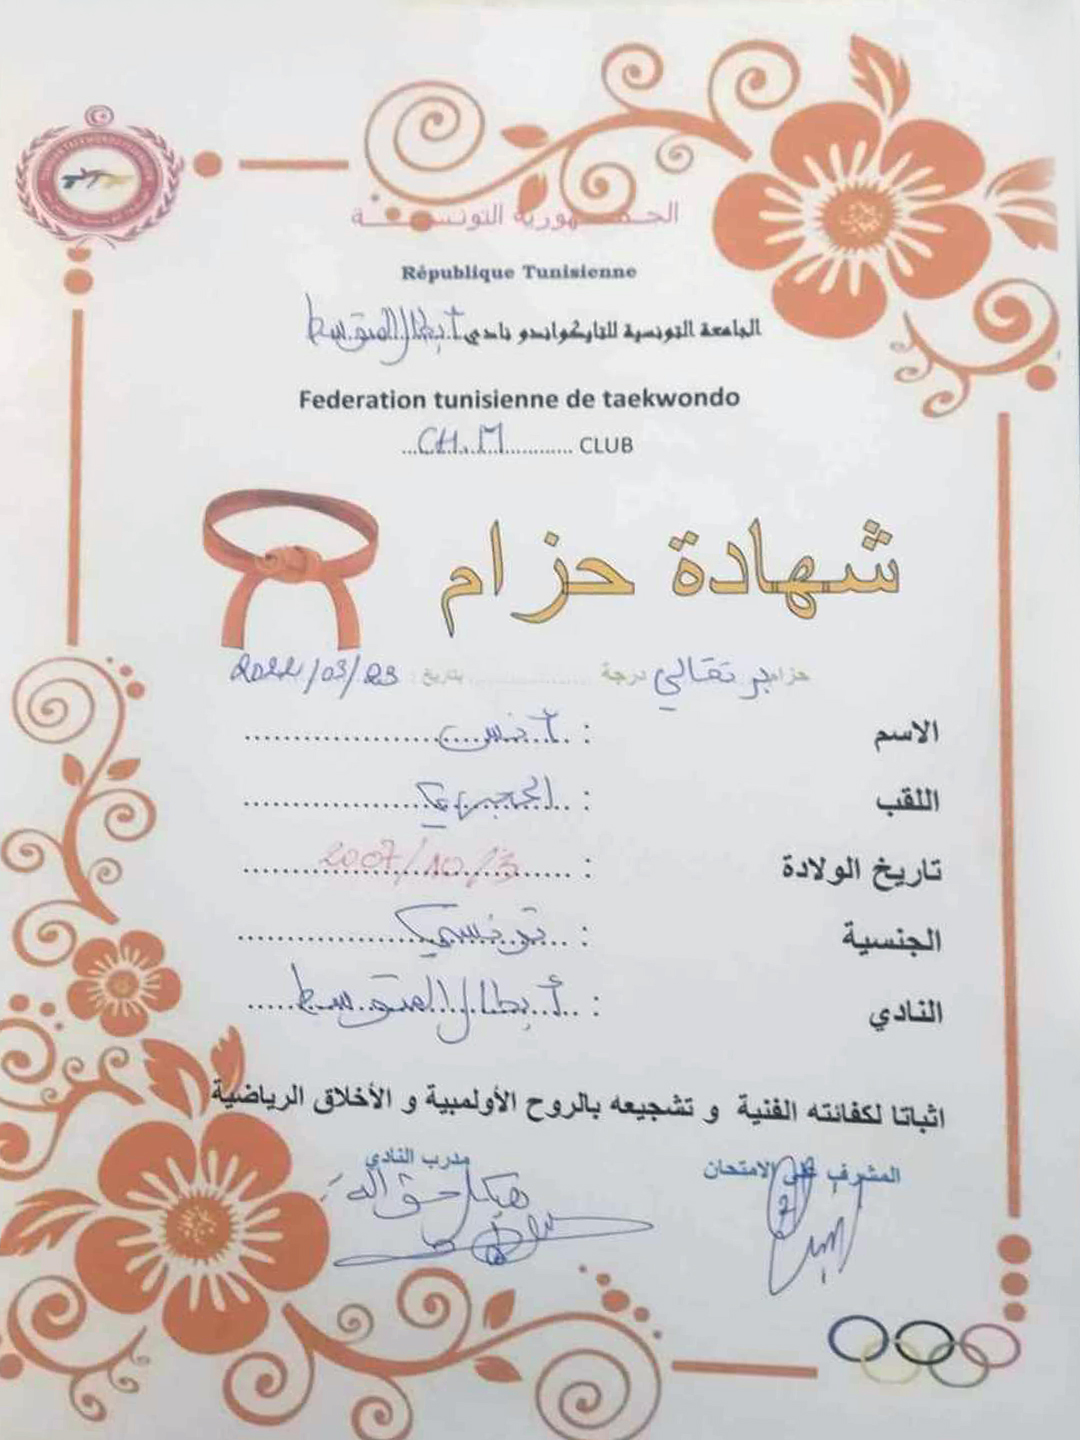 الجمهورية التونسية
République Tunisienne
الجامعة التونسية للتايكواندو نادي أبطال المتوسط
Federation tunisienne de taekwondo
...CH.M............ CLUB
شهادة حزام
حزام برتقالي درجة .................... بتاريخ : 2022/03/23
الاسم : أنس
اللقب :
تاريخ الولادة : 2007/10/3
الجنسية : تونسي
النادي : أبطال المتوسط
اثباتا لكفائته الفنية و تشجيعه بالروح الأولمبية و الأخلاق الرياضية
المشرف على الامتحان
مدرب النادي
هيكل